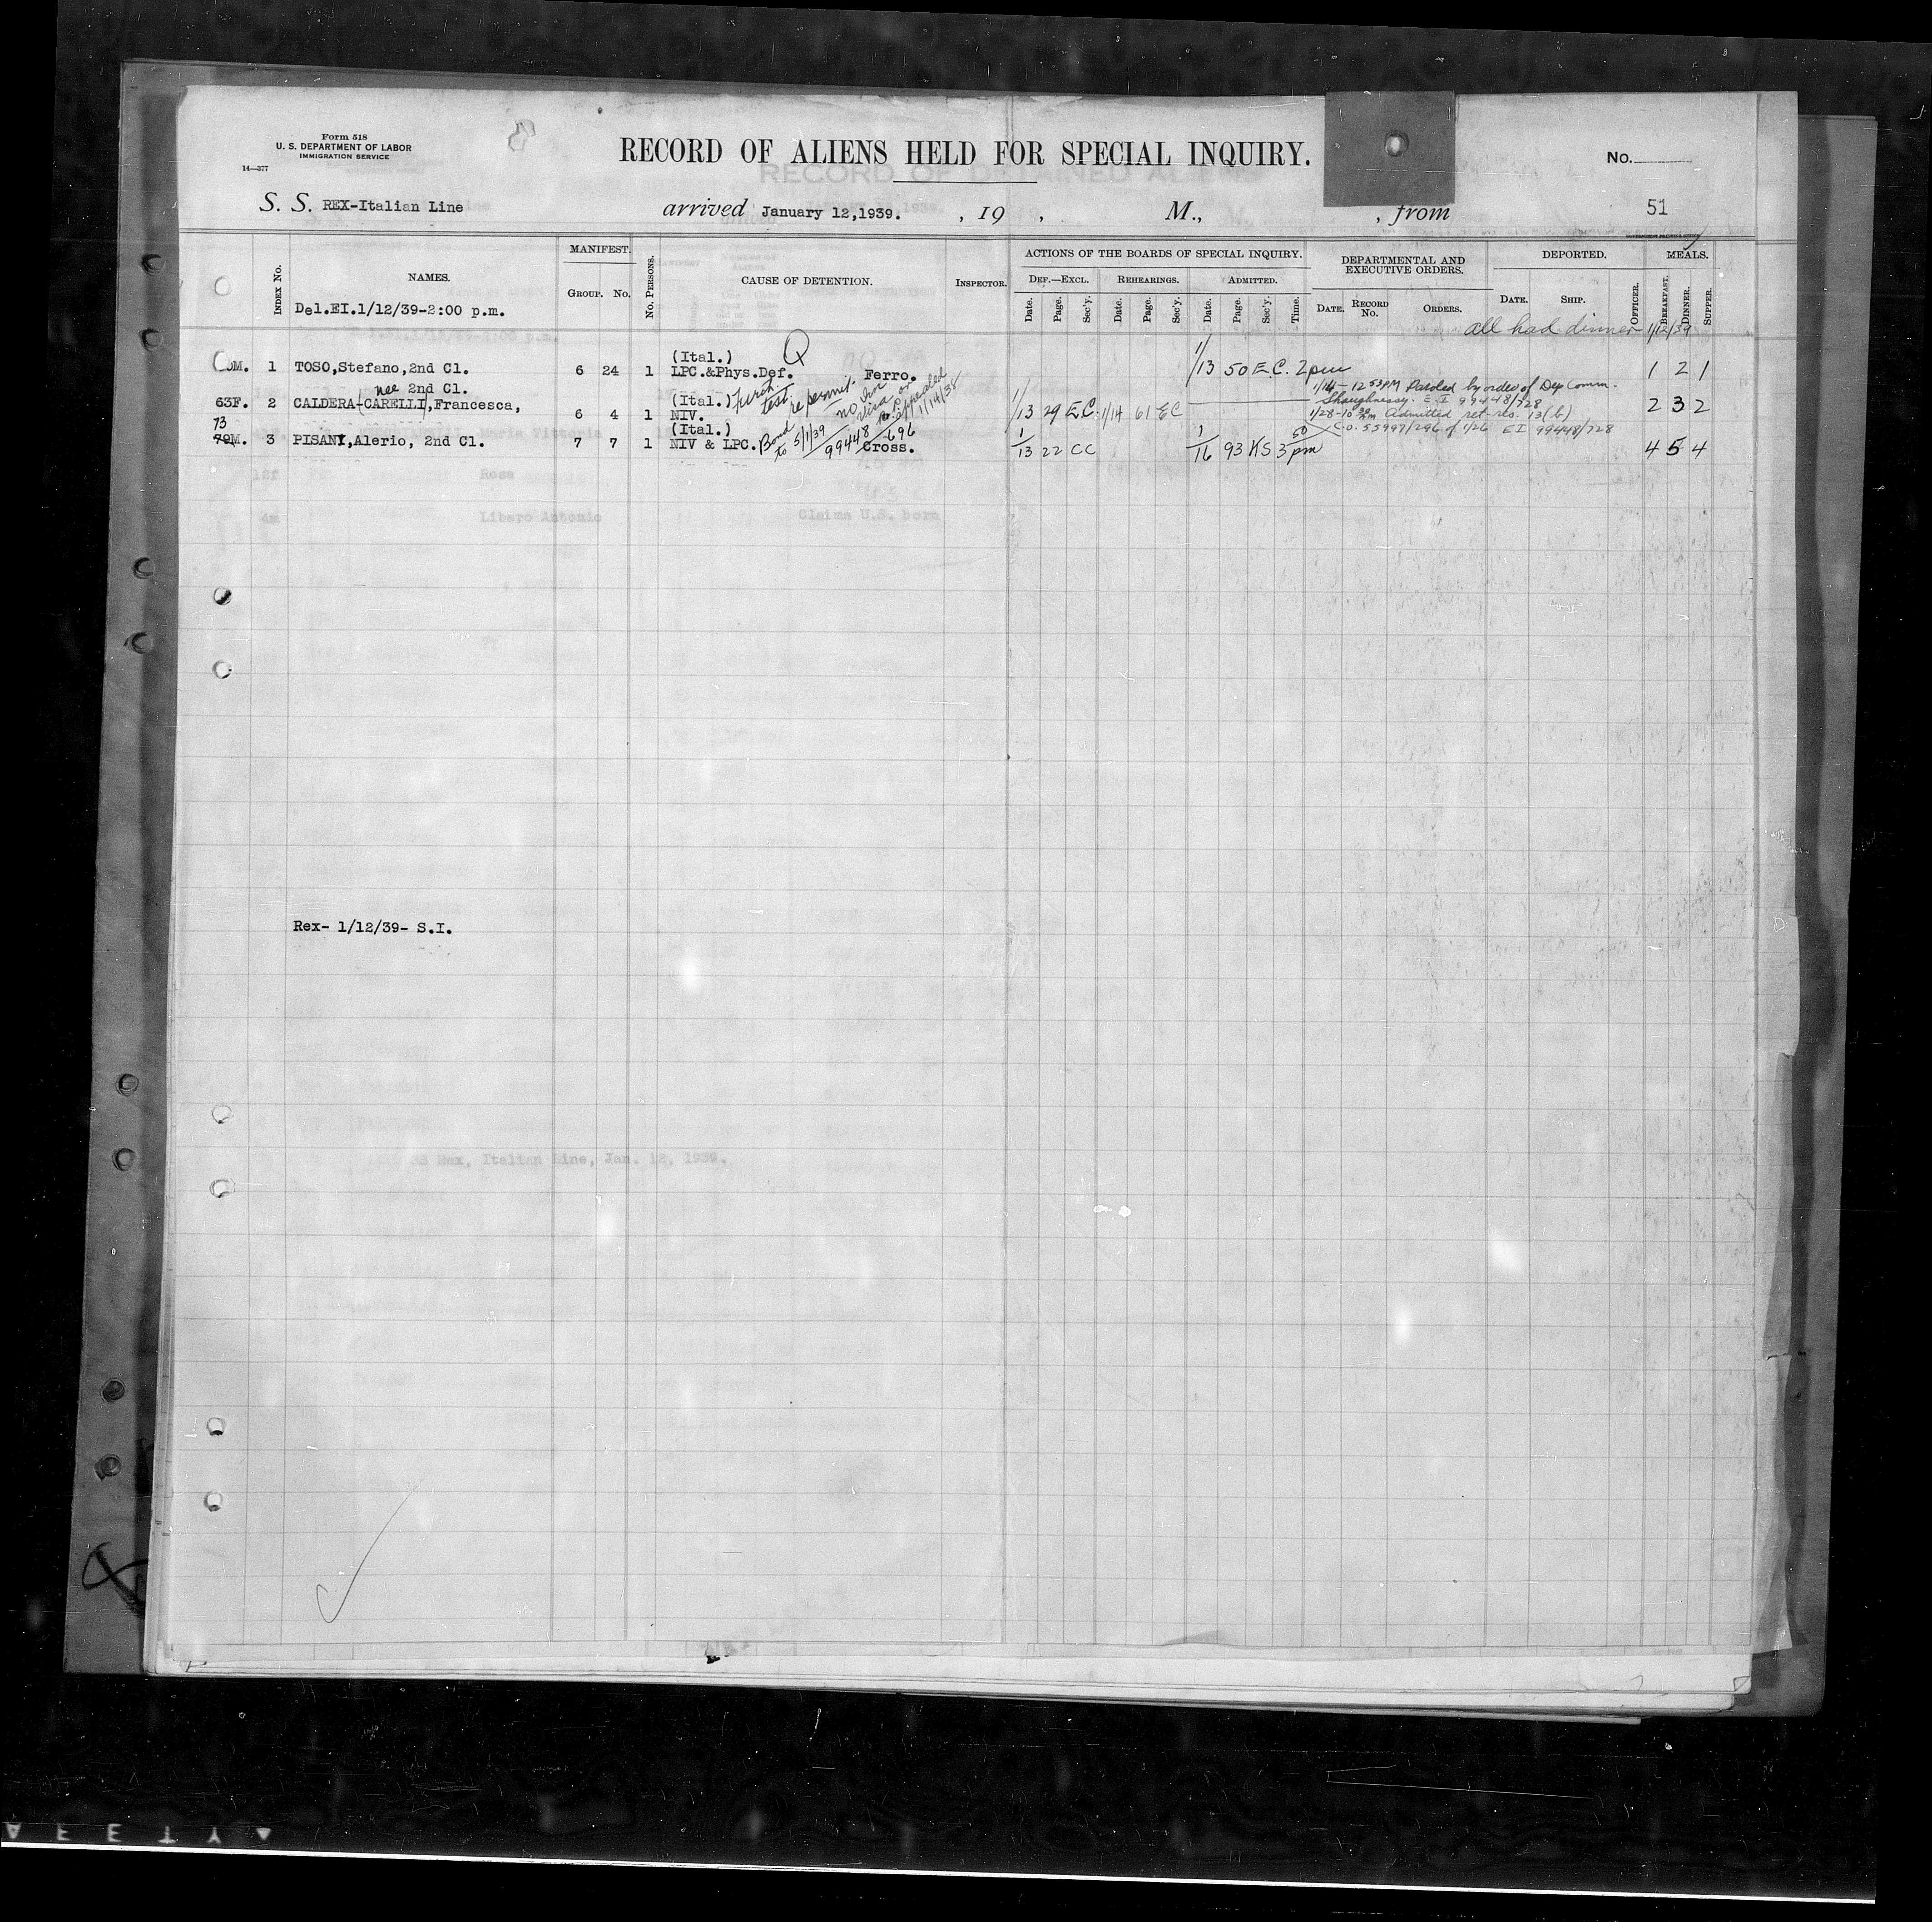 Form 518
U. S. DEPARTMENT OF LABOR
IMMIGRATION SERVICE
14—377
RECORD OF ALIENS HELD FOR SPECIAL INQUIRY.
No.
S. S. REX-Italian Line arrived January 12,1939. , 19 , M., , from 51
GOVERNMENT PRINTING OFFICE
INDEX No. NAMES. MANIFEST. Group. No. No. PERSONS. CAUSE OF DETENTION. INSPECTOR. ACTIONS OF THE BOARDS OF SPECIAL INQUIRY. DEPARTMENTAL AND EXECUTIVE ORDERS. DEPORTED. MEALS.
DEF.—EXCL. REHEARINGS. ADMITTED.
Date. Page. Sec'y. Date. Page. Sec'y. Date. Page. Sec'y. Time. DATE. RECORD No. ORDERS. DATE. SHIP. OFFICER. BREAKFAST. DINNER. SUPPER.
Del.EI.1/12/39-2:00 p.m.
all had dinner 1/12/39
(Ital.) Q
M. 1 TOSO,Stefano,2nd Cl. 6 24 1 LPC.&Phys.Def. Ferro. 1/13 50 E.C. 2pm 1 2 1
nee 2nd Cl.
63F. 2 CALDERA-(CARELLI),Francesca, 6 4 1 (Ital.) NIV. Furth. test. re permit. no Im visa or appealed 1/14/38 1/13 29 E.C. 1/14 61 EC 2 3 2
1/14 - 12 53PM Paroled by order of Dep Comm.
Shaughnessy. E.I 99448/728
1/28-10 AM Admitted ret. res. 13(b)
C.O. 55997/296 of 1/26 EI 99448/728
73
79M. 3 PISANI,Alerio, 2nd Cl. 7 7 1 (Ital.) NIV & LPC. Bond to 5/1/39 99448/696 Cross. 1/13 22 CC 1/16 93 KS 3 50 pm 4 5 4
12f Rose
4m Libero Antonio Claims U.S. born
Rex- 1/12/39- S.I.
SS Rex, Italian Line, Jan. 12, 1939.
AFETY